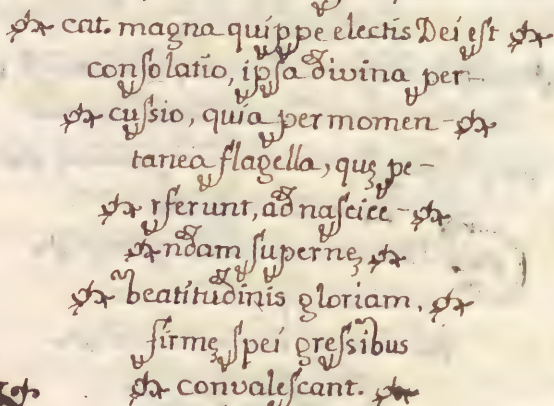 cat. magna quippe electis Dei eſt
conſolatio, ipſa divina per-
cuſsio, quia per momen-
tanea flagella, quę pe-
rferunt, ad naſcice-
ndam ſupernę
beatitudinis gloriam,
firmę ſpei greſsibus
convaleſcant.